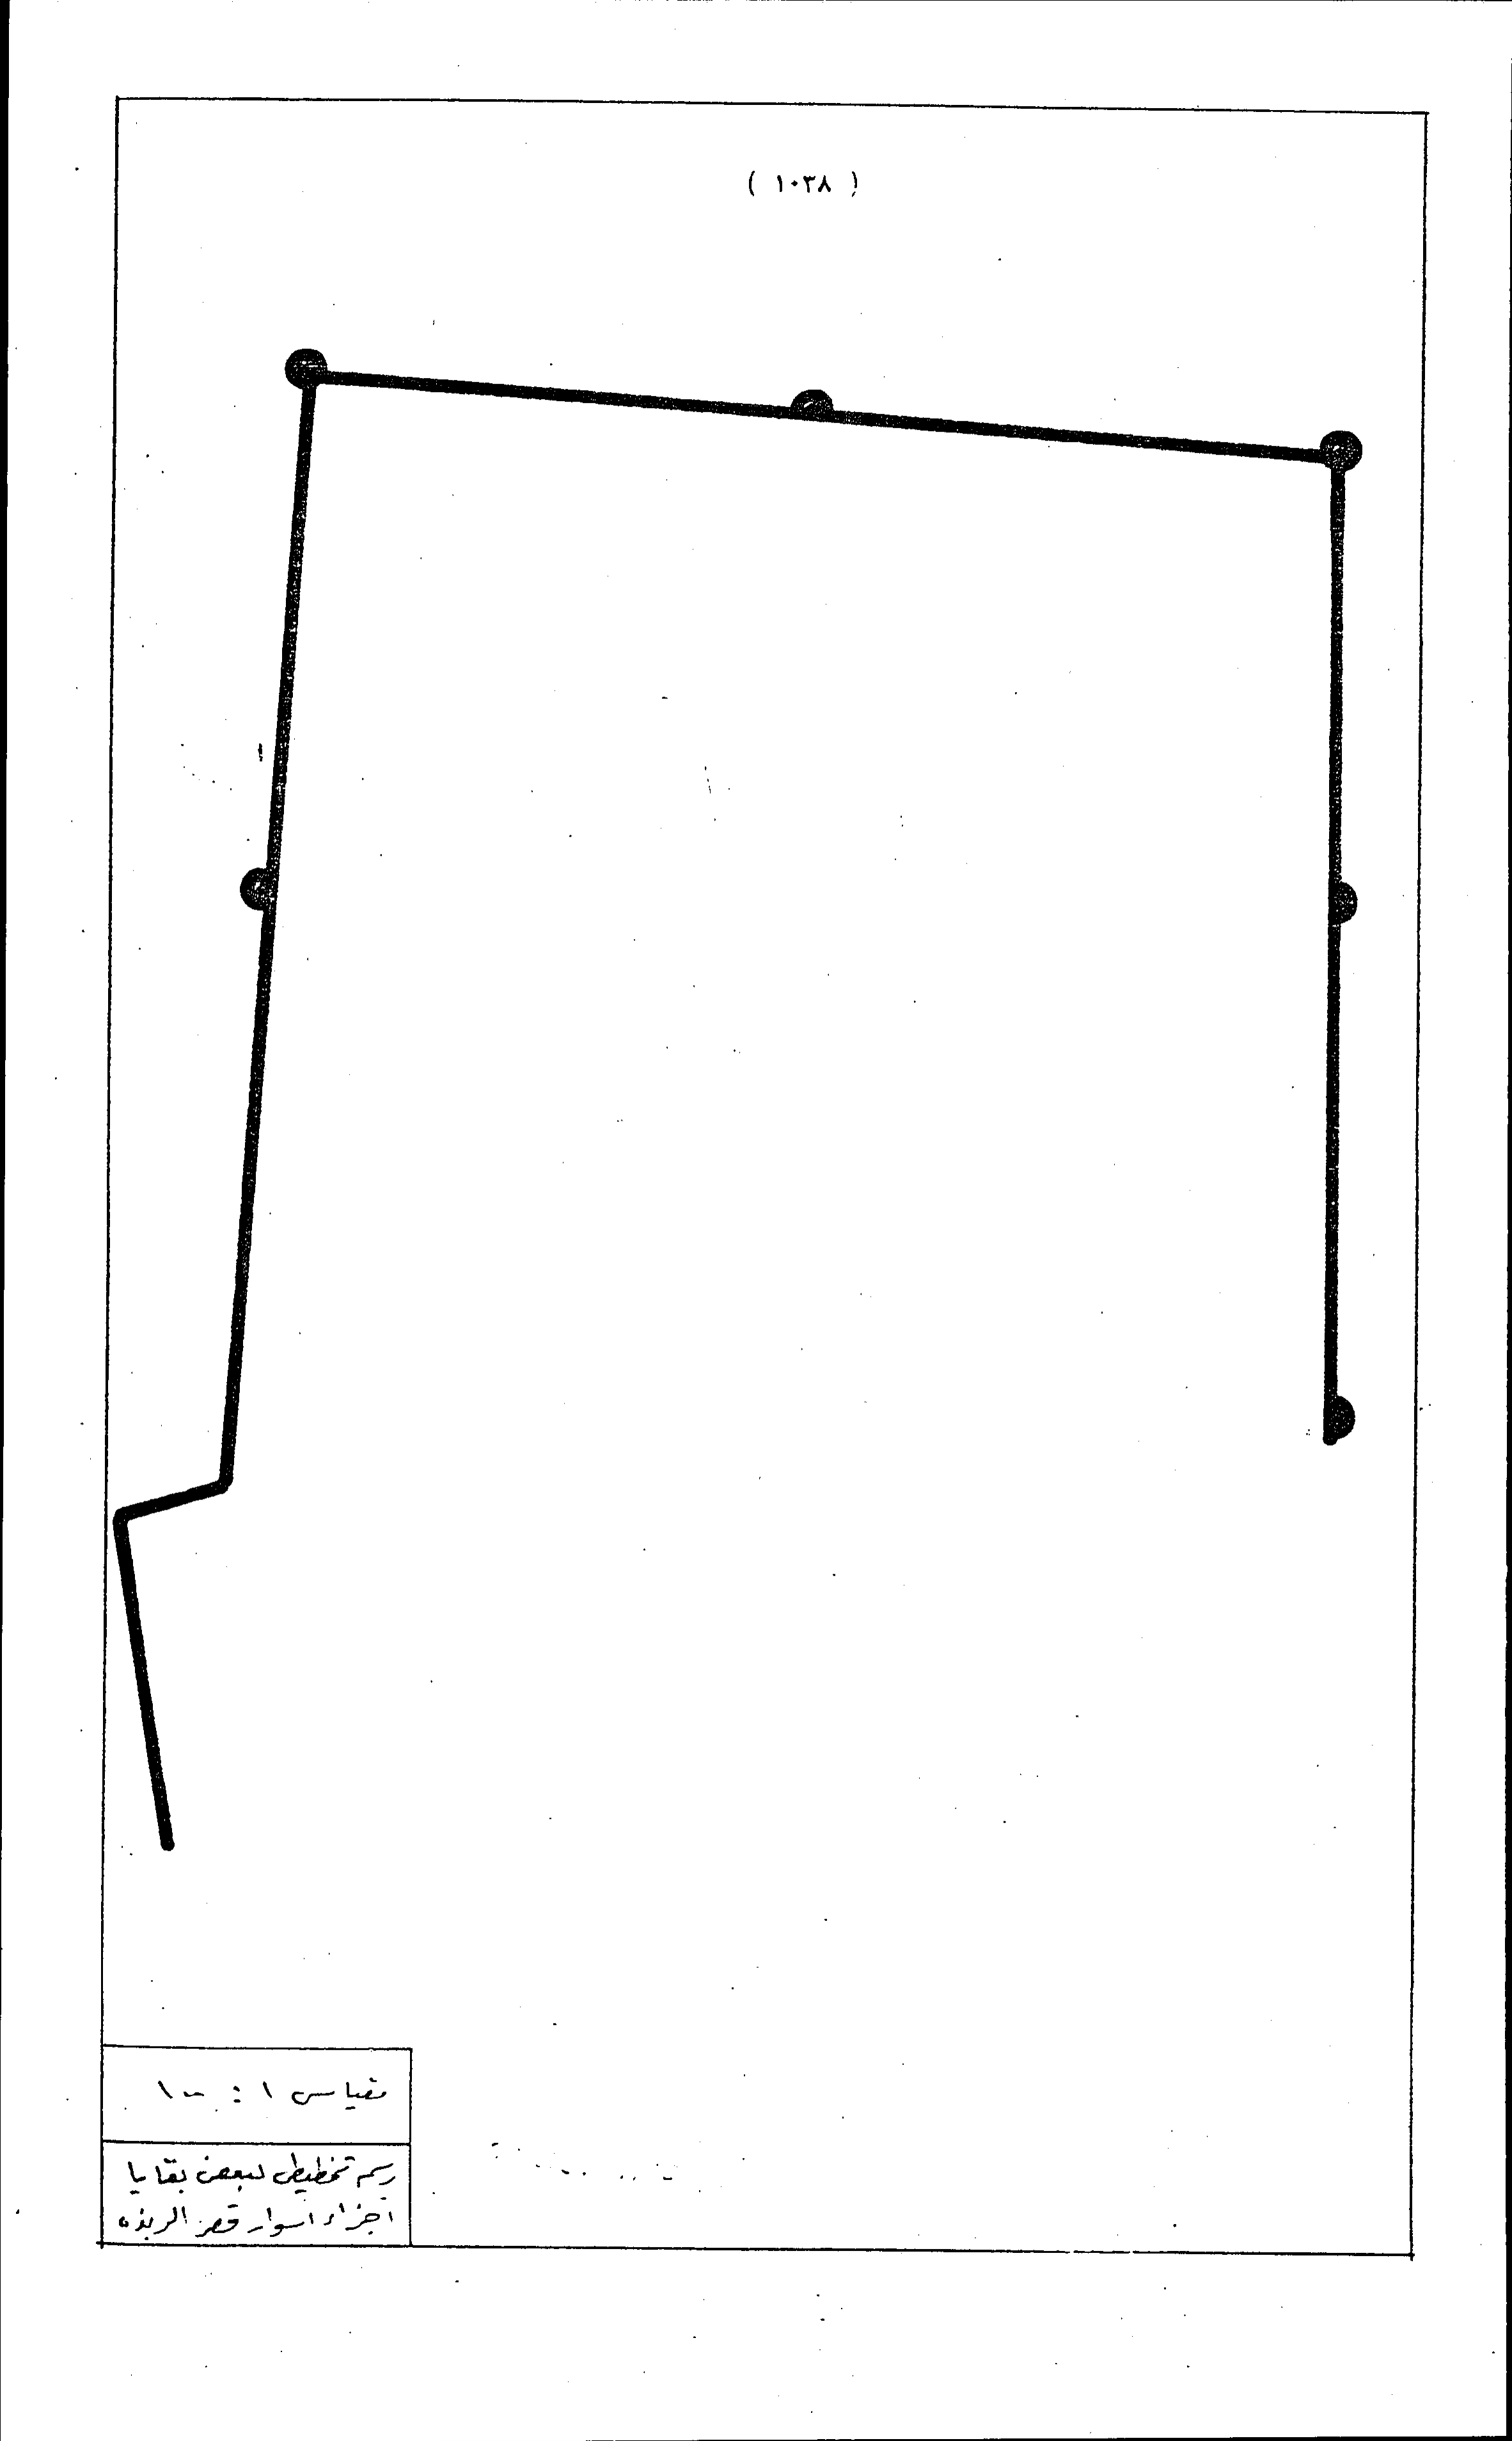 ( ١٠٣٨ )
مقياس ١ : ١٠٠
رسم تخطيطى لبعض بقايا
أجزاء اسوار قصر الربذه